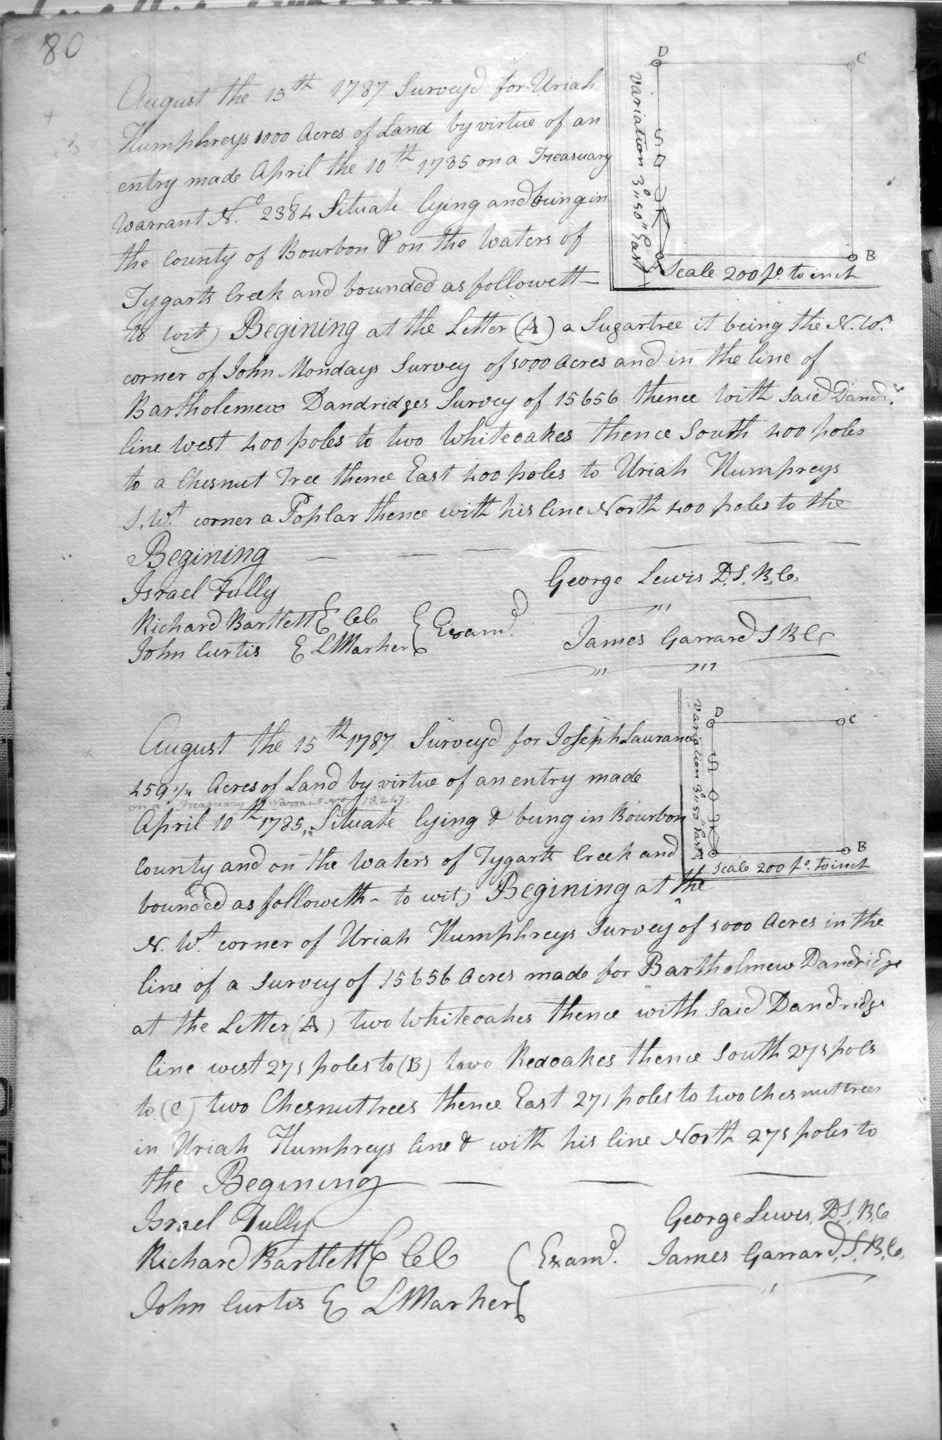 80
August the 15th 1787 Survey'd for Uriah
Humphreys 1000 Acres of Land by virtue of an
entry made April the 10th 1785 on a Treasuary
Warrant No. 2384 Situate lying and being in
the County of Bourbon & on the Waters of
Tygarts Creek and bounded as followeth
to wit) Begining at the Letter (A) a Sugartree it being the N.Wt.
corner of John Mondays Survey of 1000 Acres and in the line of
Bartholemew Dandridges Survey of 15656 thence with Said Dandrs.
line West 400 poles to two Whiteoakes thence South 400 poles
to a Chesnut Tree thence East 400 poles to Uriah Humpreys
S.Wt. corner a Poplar thence with his line North 400 poles to the
Begining
Israel Tully
Richard Bartlett CCC
John Curtis LMarker
Examd.
George Lewis D.S.B.Co.
James Garrard S B C
D
C
Variation 3°.50" East
B
Scale 200 po. to inch
August the 15th 1787 Survey'd for Joseph Laurance
459 1/4 Acres of Land by virtue of an entry made
on a Treasuary Warrant No. 18247
April 10th 1785, Situate lying & being in Bourbon
County and on the Waters of Tygarts Creek and
bounded as followeth - to wit) Begining at the
N.Wt. corner of Uriah Humphreys Survey of 1000 Acres in the
line of a Survey of 15656 Acres made for Bartholmew Dandridge
at the Letter (A) two Whiteoakes thence with Said Dandridge
line west 271 poles to (B) two Redoakes thence South 271 poles
to (C) two Chesnuttrees thence East 271 poles to two Chesnuttrees
in Uriah Humphreys line & with his line North 271 poles to
the Begining
Israel Tully
Richard Bartlett CCC
John Curtis LMarker
Examd.
George Lewis, D.S.B.C
James Garrard, S.B.Co.
D
C
Variation 3°.50" East
B
Scale 200 po. to inch